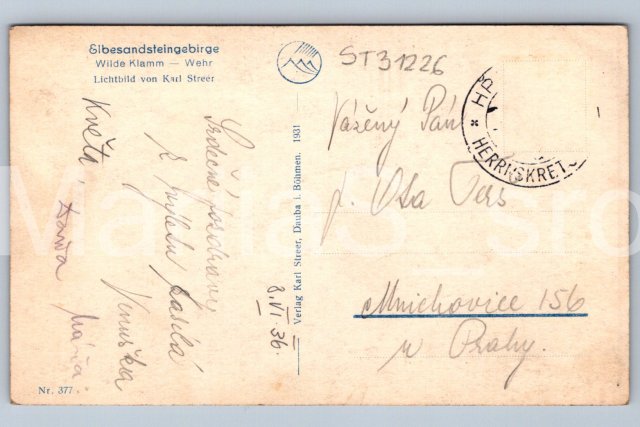 Elbesandsteingebirge
Wilde Klamm — Wehr
Lichtbild von Karl Streer
ST31226
HERRNSKRET
Srdečné pozdravy
z výletu zasílá
Venuška
Květa,
Máňa.
8. VI 36.
Verlag Karl Streer, Dauba i. Böhmen. 1931
Vážený Pán
p. Ota
Mnichovice 156
u Prahy.
Nr. 377.